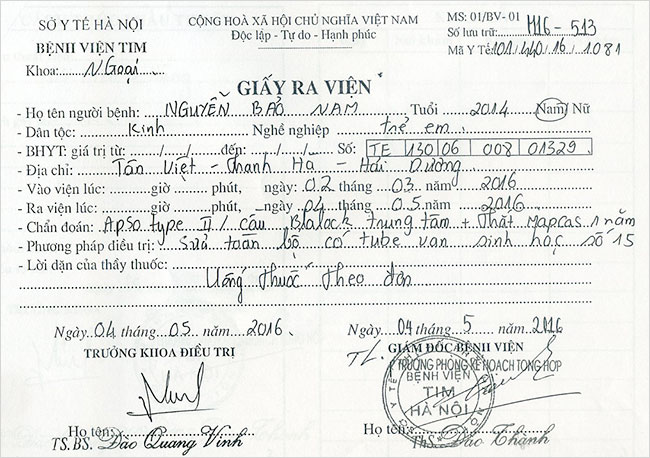 SỞ Y TẾ HÀ NỘI
BỆNH VIỆN TIM
Khoa: Ngoại
CỘNG HOÀ XÃ HỘI CHỦ NGHĨA VIỆT NAM
Độc lập - Tự do - Hạnh phúc
MS: 01/BV- 01
Số lưu trữ: M16 - 513
Mã Y Tế: 101/440/16/1081
GIẤY RA VIỆN
- Họ tên người bệnh: NGUYỄN BẢO NAM Tuổi 2014 Nam/ Nữ
- Dân tộc: Kinh Nghề nghiệp trẻ em
- BHYT: giá trị từ: ..../..../.... đến: ..../..../.... Số: TE 130 06 008 01329
- Địa chỉ: Tân Việt - Thanh Hà - Hải Dương
- Vào viện lúc: ........ giờ ........ phút, ngày: 02 tháng 03 năm 2016
- Ra viện lúc: ........ giờ ........ phút, ngày 04 tháng 05 năm 2016
- Chẩn đoán: ApSo type II / cầu Blalock trung tâm + Thắt Mapcas 1 năm
- Phương pháp điều trị: Sửa toàn bộ có tube van sinh học số 15
- Lời dặn của thầy thuốc:
Uống thuốc theo đơn
Ngày 04 tháng 05 năm 2016
TRƯỞNG KHOA ĐIỀU TRỊ
Họ tên:
TS.BS. Đào Quang Vinh
Ngày 04 tháng 5 năm 2016
TL. GIÁM ĐỐC BỆNH VIỆN
TRƯỞNG PHÒNG KẾ HOẠCH TỔNG HỢP
BỆNH VIỆN
TIM
HÀ NỘI
Họ tên:
ThS. Đào Thành